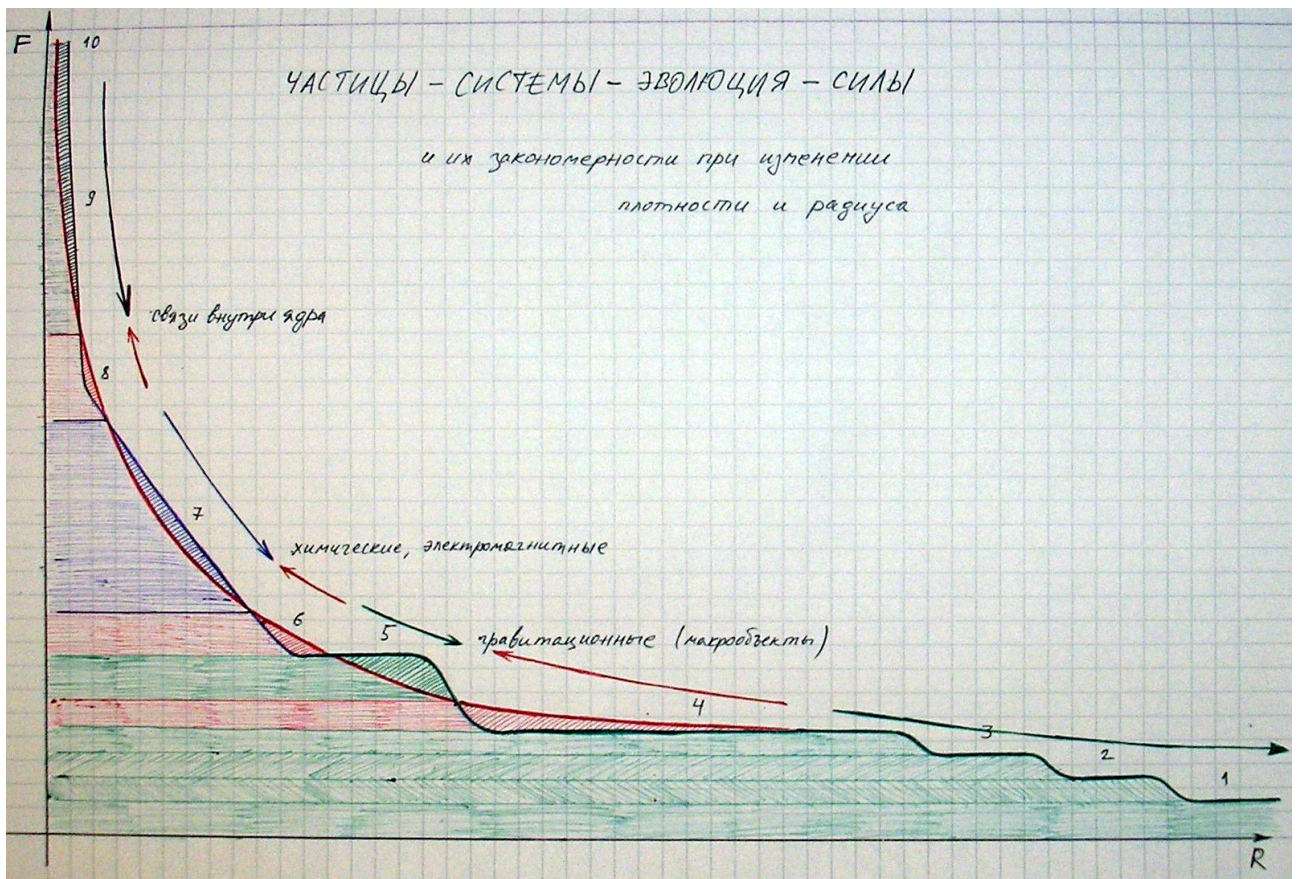 F
10
ЧАСТИЦЫ – СИСТЕМЫ – ЭВОЛЮЦИЯ – СИЛЫ
и их закономерности при изменении
плотности и радиуса
9
связи внутри ядра
8
7
химические, электромагнитные
6
5
гравитационные (макрообъекты)
4
3
2
1
R